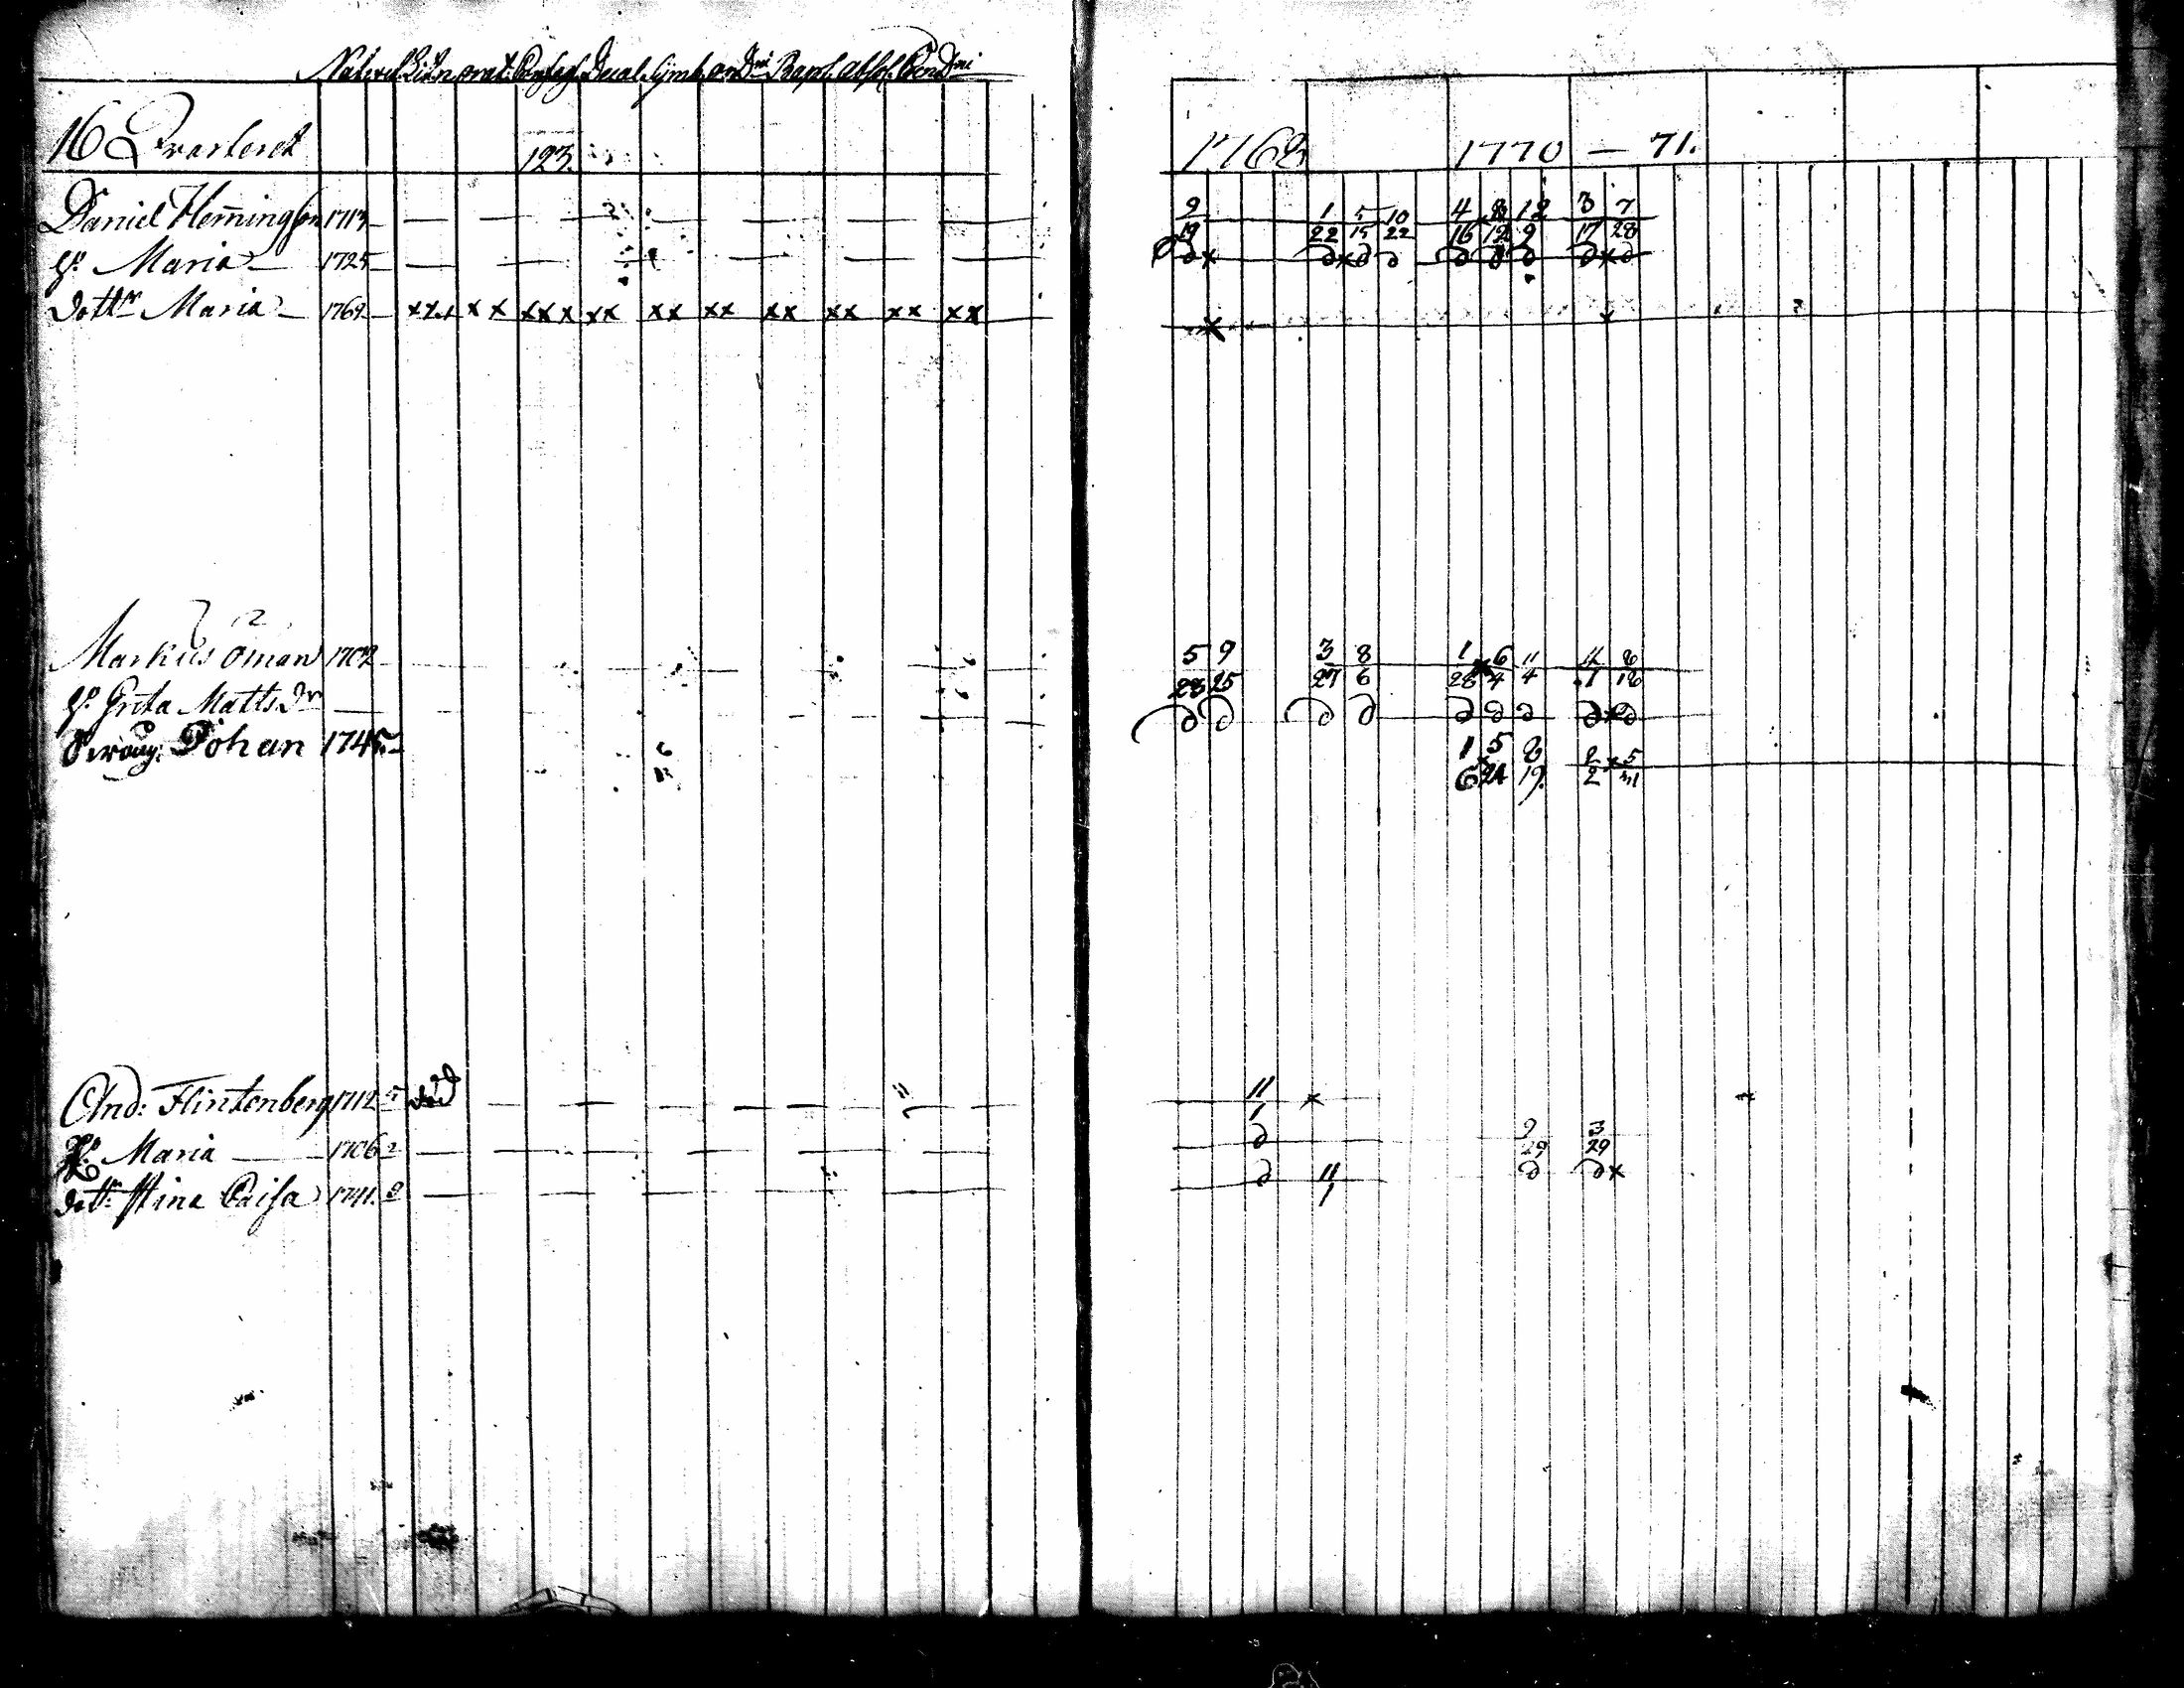 Decal. Symb. Bapt. absol.
16 Qvarteret 123. 1768 1770 — 71.
Daniel Hemingson 1713 — — — — — — — — — 9 1 5 10 4 8 12 3 7
19 22 15 22 16 12 9 17 28
H. Maria — 1725 — — — — — — — — — ∂ x ∂ x ∂ ∂ ∂ ∂ ∂ ∂ x ∂
dottr Maria — 1762 x x x x x x x x x x x x x x x x x x x x x x
Markus öman 1702 5 9 3 8 1 6 11 8
28 25 27 6 28 4 4 1 18
H. Greta Matts dr ∂ ∂ ∂ ∂ ∂ ∂ ∂ ∂ x ∂
Johan 1745 1 5 8 2 x 5
6 24 19. 2
And: Flintenberg 1712 död — — — — — — — — 11 x
1
H. Maria — 1706 — — — — — — — — — ∂ 9 3
29 29
dottr Stina Caisa 1741. — — — — — — — — — ∂ 11 ∂ ∂ x
1